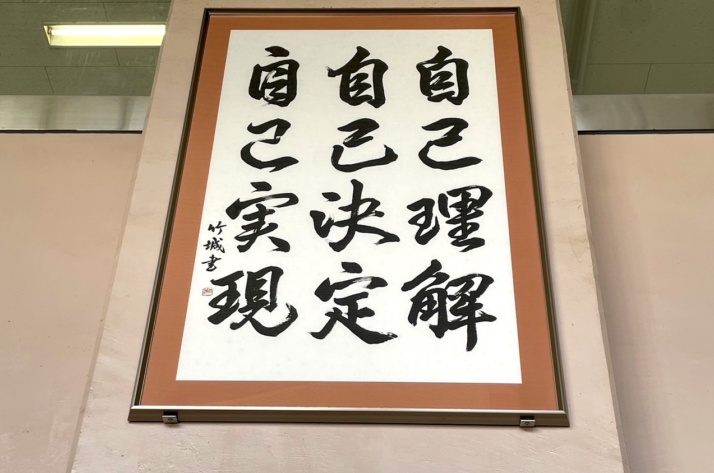 自己理解
自己決定
自己実現
竹城書